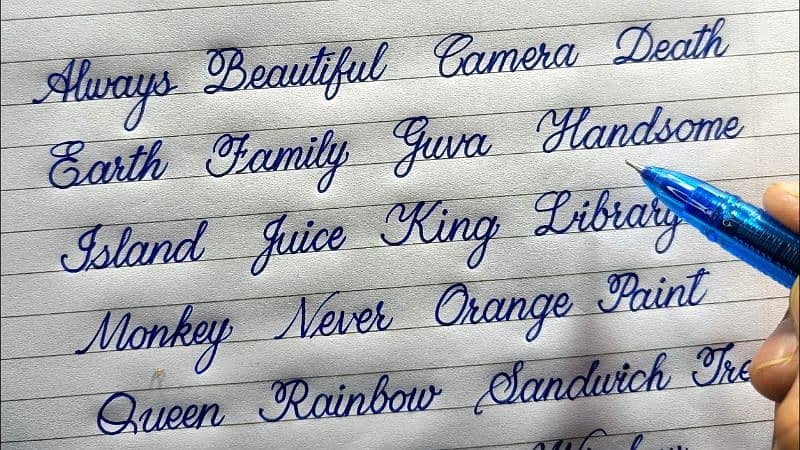 Always Beautiful Camera Death
Earth Family Guva Handsome
Island Juice King Library
Monkey Never Orange Paint
Queen Rainbow Sandwich